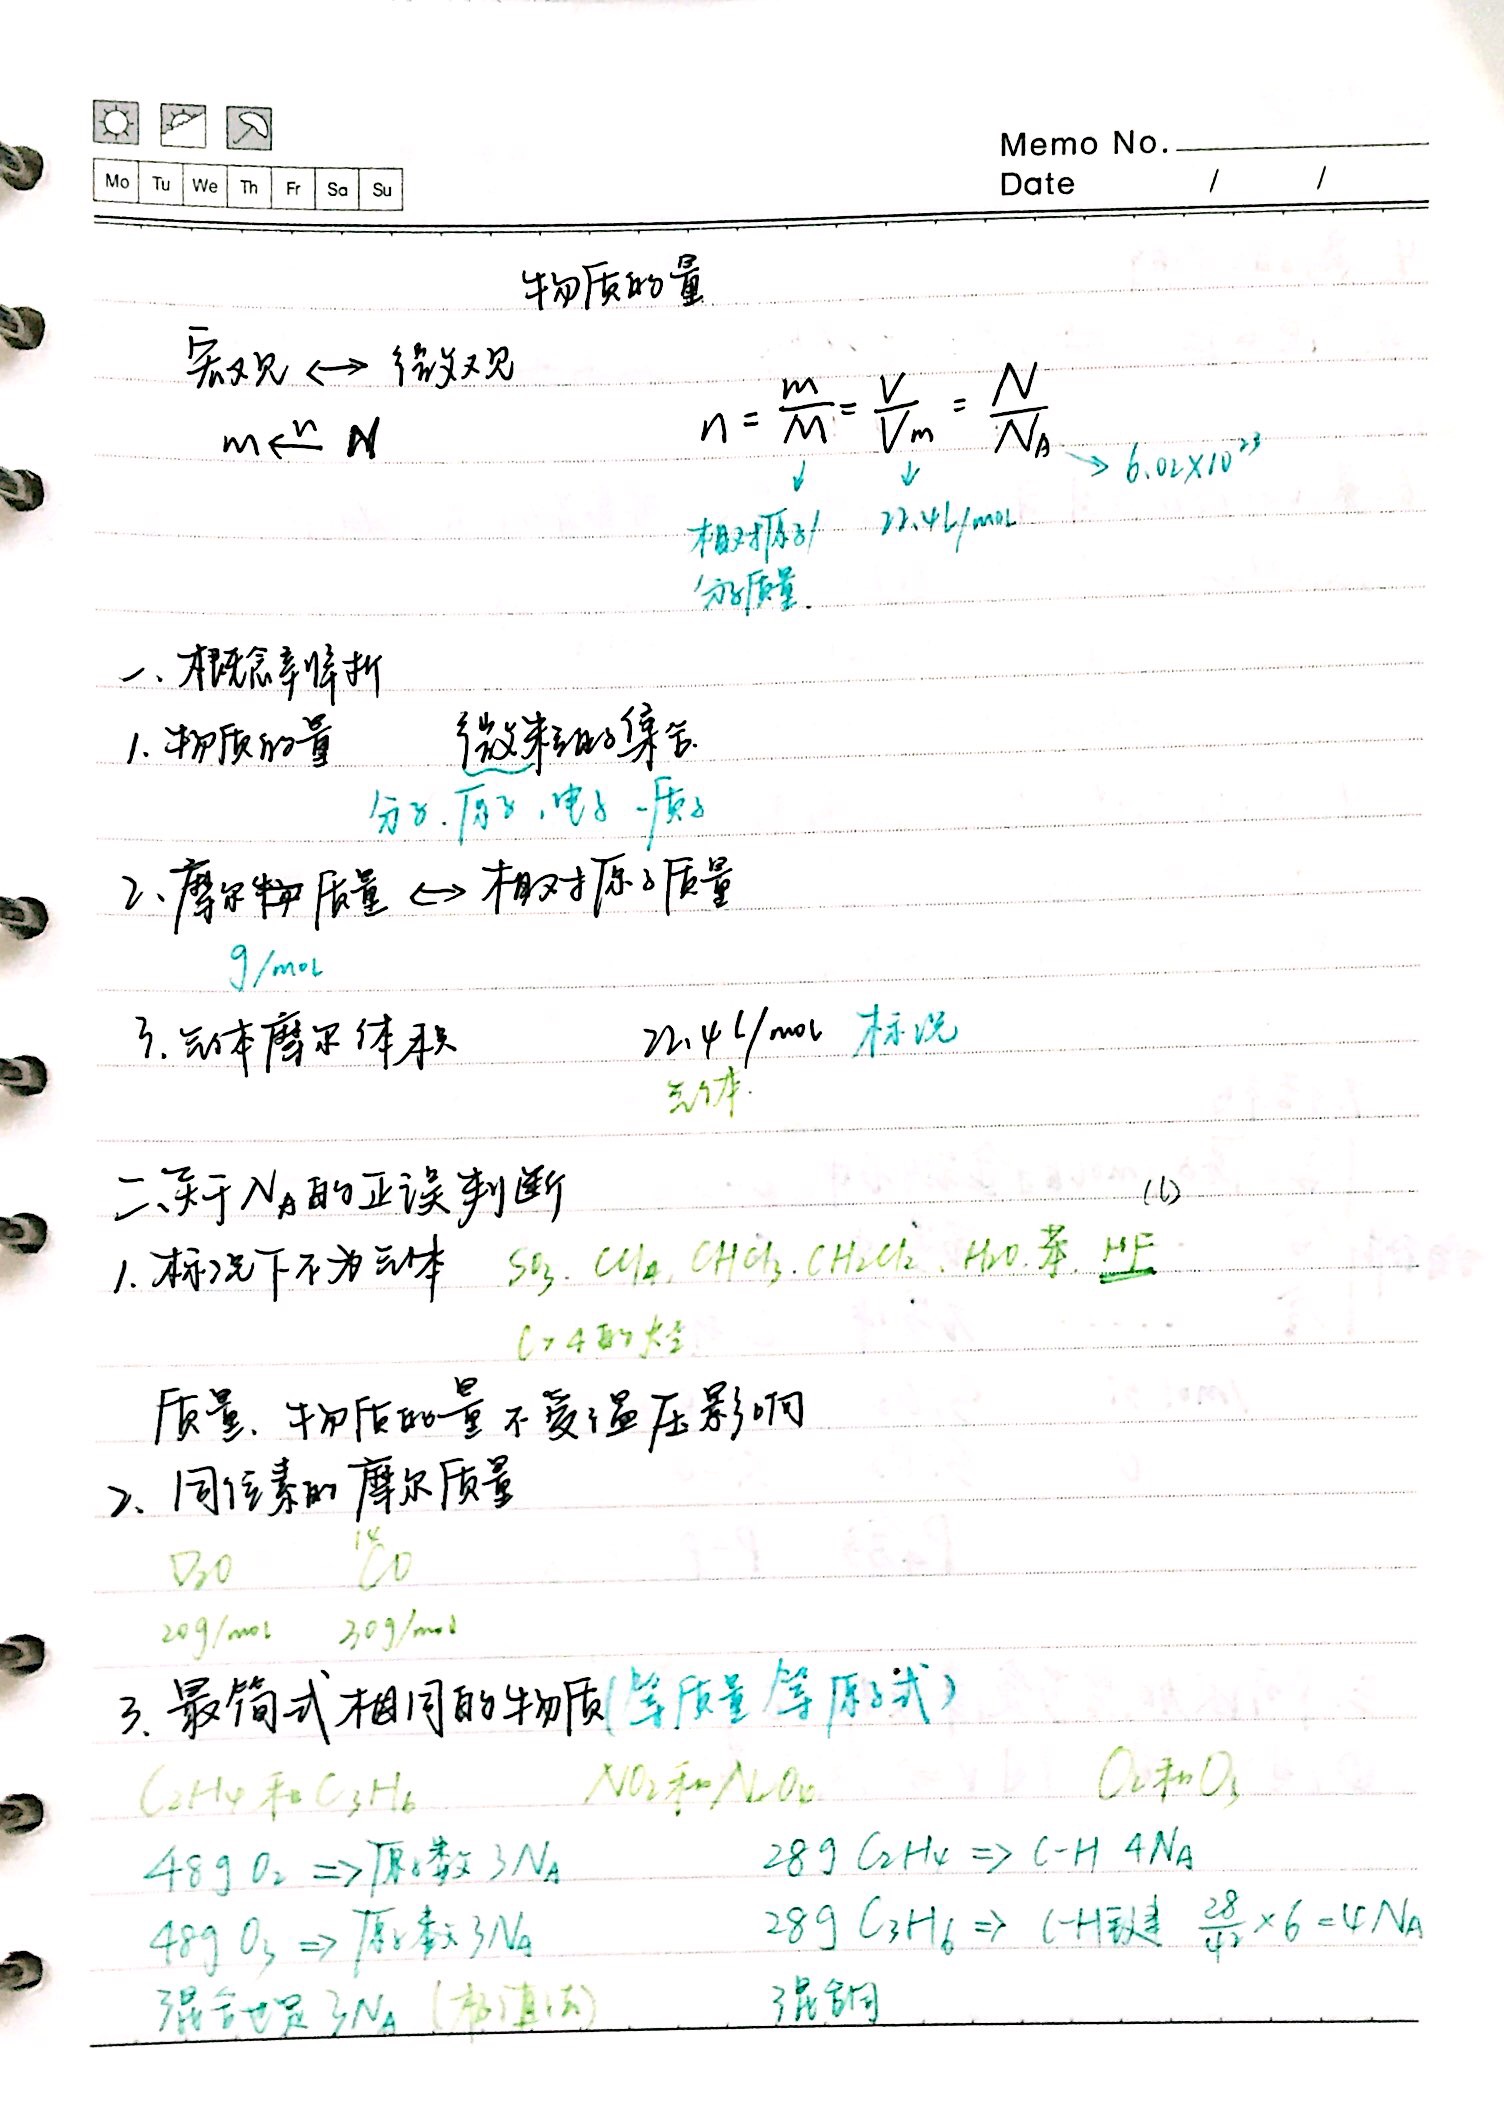 Memo No.
Mo Tu We Th Fr Sa Su
Date / /
物质的量
宏观 ↔ 微观
n = m/M = V/Vm = N/N_A
m ←n N
→ 6.02×10²³
↓ ↓
相对原子/ 22.4L/mol
分子质量.
一、概念辛解析
1. 物质的量 微粒的集合.
分子.原子,电子、质子
2、摩尔质量 ↔ 相对原子质量
g/mol
3. 气体摩尔体积 22.4L/mol 标况
气体.
二、关于N_A的正误判断 (l)
1. 标况下不为气体 SO₃. CCl₄. CHCl₃. CH₂Cl₂. H₂O. 苯. HF
C>4的大
质量、物质的量不受温压影响
2、同位素的摩尔质量
D₂O ¹⁴CO
20g/mol 30g/mol
3、最简式相同的物质(等质量等原子式)
C₂H₄和C₃H₆ NO₂和N₂O₄ O₂和O₃
48g O₂ => 原子数 3N_A 28g C₂H₄ => C-H 4N_A
48g O₃ => 原子数 3N_A 28g C₃H₆ => C-H键 28/42 × 6 = 4N_A
混合也是 3N_A (极值法) 混合同